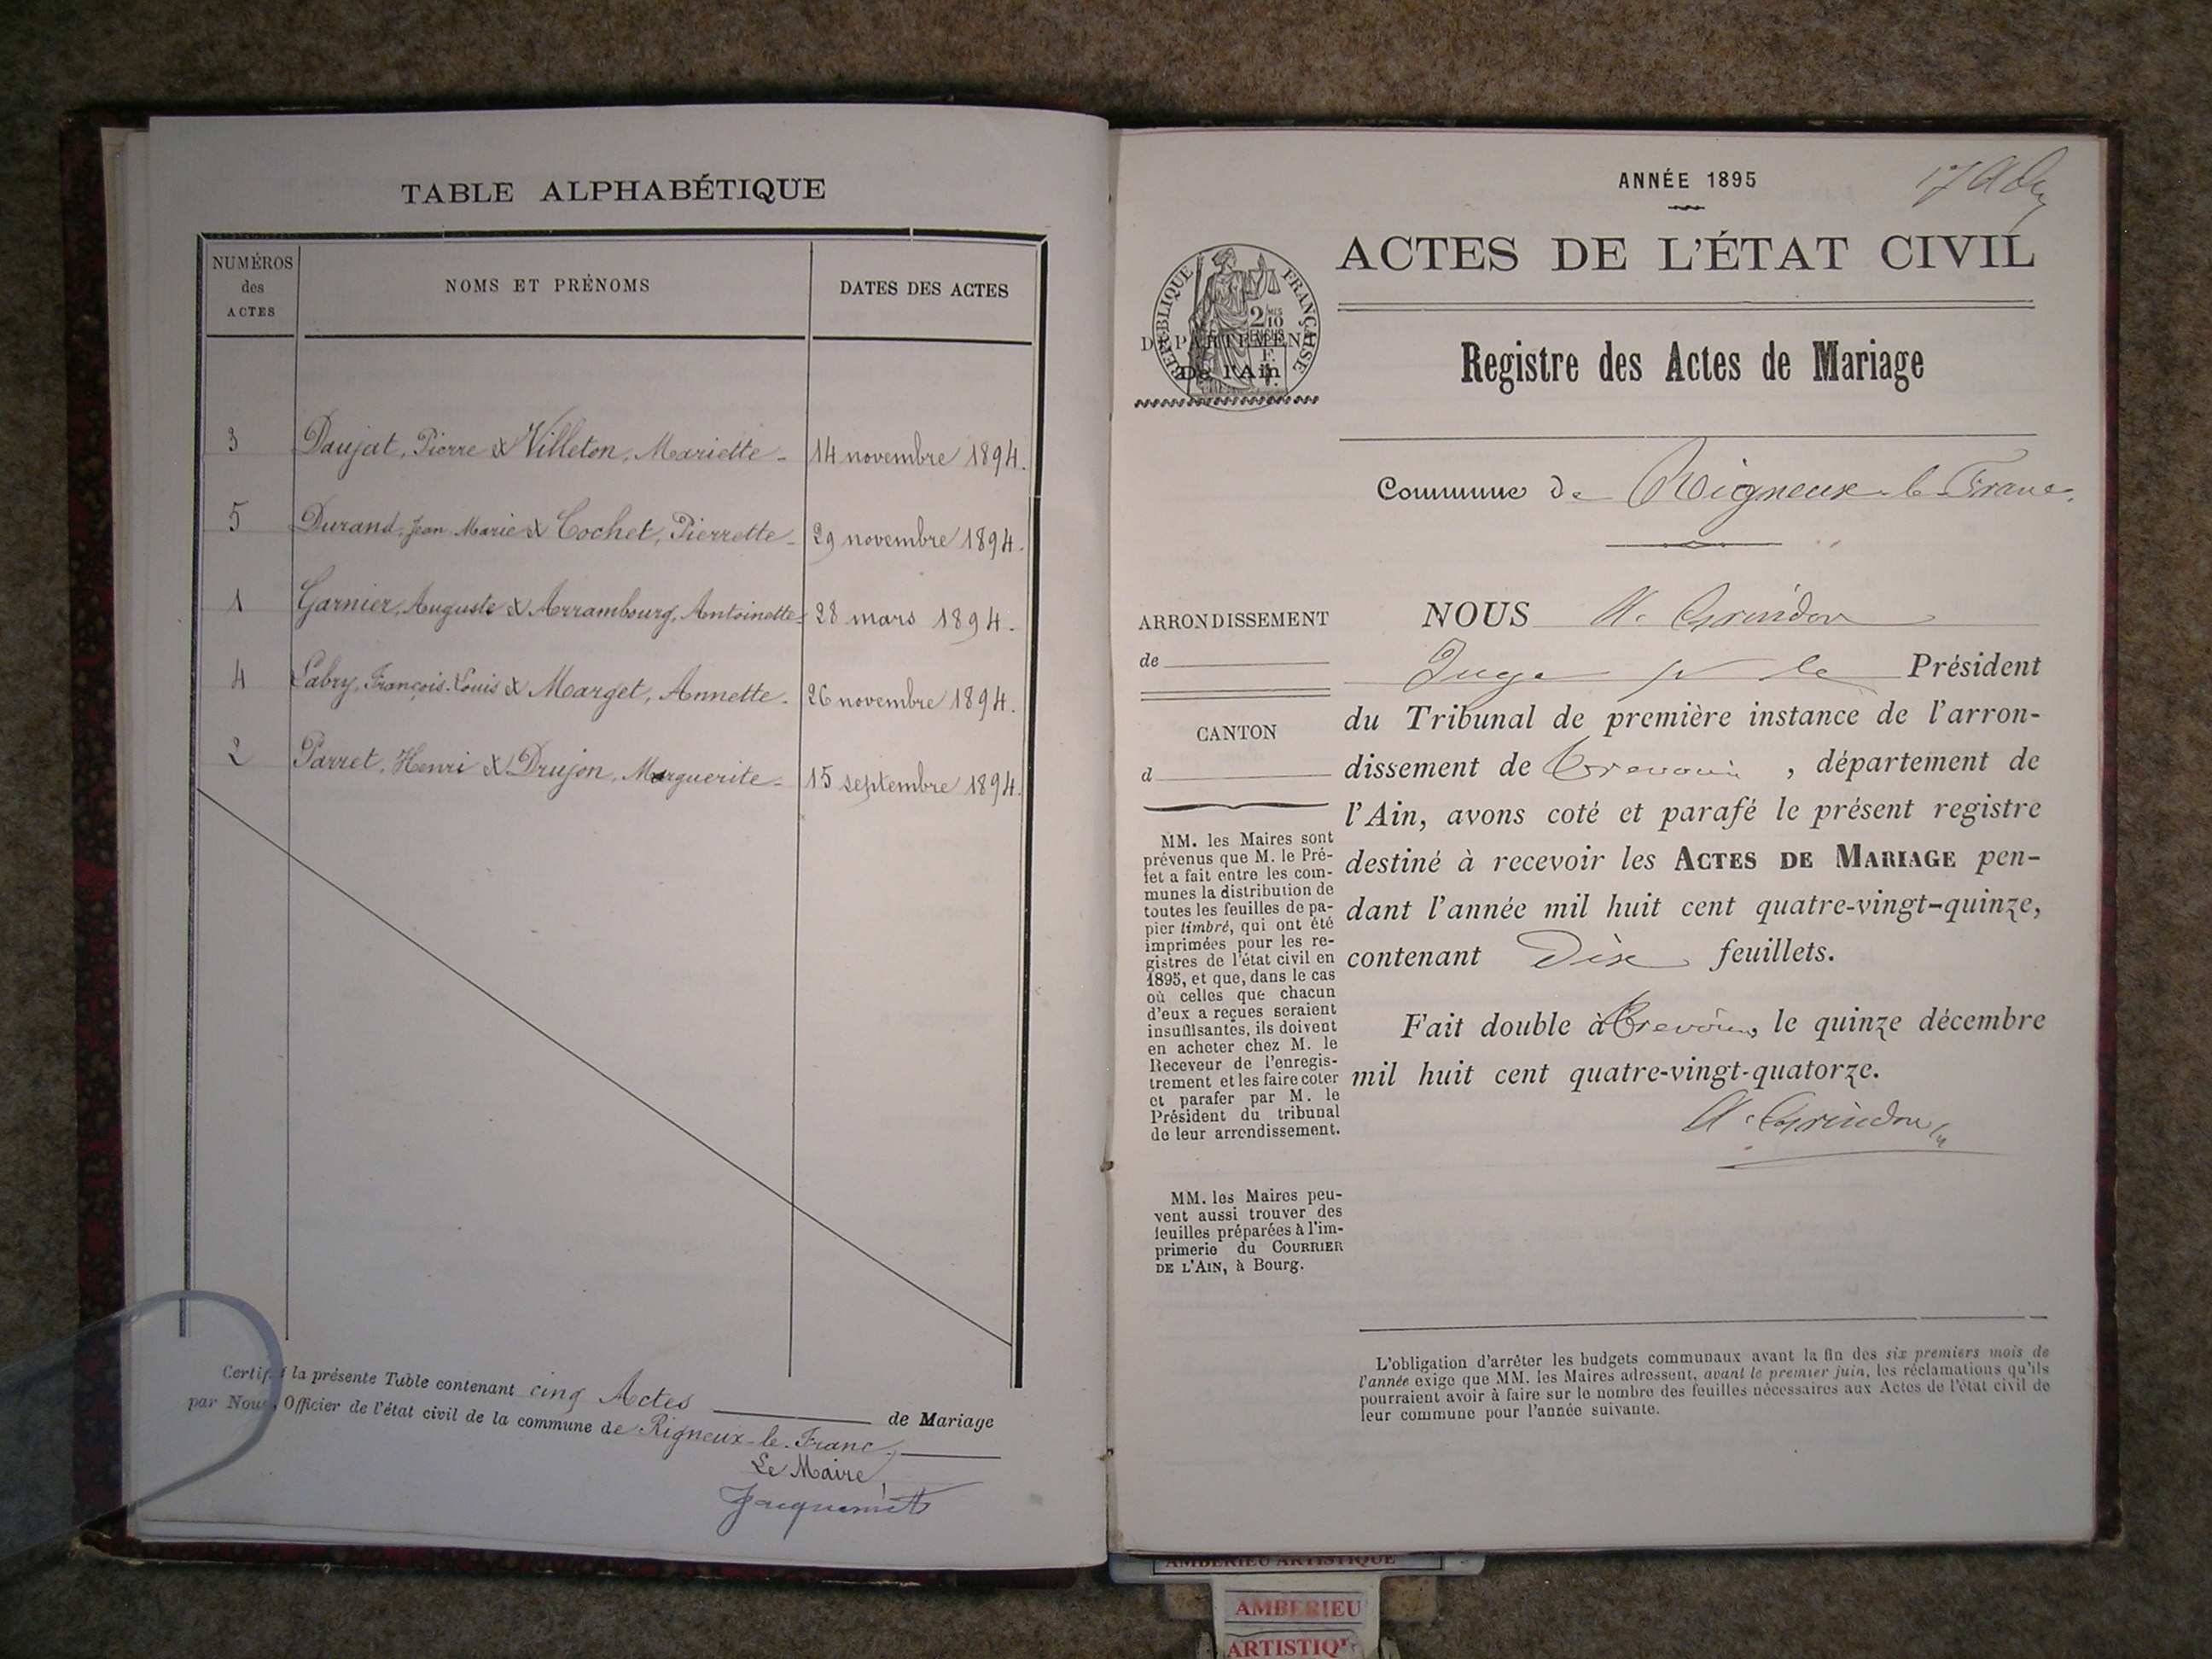 TABLE ALPHABÉTIQUE
NUMÉROS
des
ACTES
NOMS ET PRÉNOMS
DATES DES ACTES
3 Daujat, Pierre & Villeton, Mariette - 14 novembre 1894.
5 Durand, Jean Marie & Cochet, Pierrette - 29 novembre 1894.
1 Garnier, Auguste & Arrambourg, Antoinette - 28 mars 1894.
4 Labry, François-Louis & Marget, Annette - 26 novembre 1894.
2 Parret, Henri & Drujon, Marguerite - 15 septembre 1894.
Certifié la présente Table contenant cinq Actes de Mariage
par Nous, Officier de l'état civil de la commune de Rigneux-le-Franc,
Le Maire
Jacquemet
ANNÉE 1895
ACTES DE L'ÉTAT CIVIL
RÉPUBLIQUE FRANÇAISE
DÉPARTEMENT
De l'Ain
Registre des Actes de Mariage
Commune de Rigneux-le-Franc.
ARRONDISSEMENT
de
CANTON
d
MM. les Maires sont
prévenus que M. le Pré-
fet a fait entre les com-
munes la distribution de
toutes les feuilles de pa-
pier timbré, qui ont été
imprimées pour les re-
gistres de l'état civil en
1895, et que, dans le cas
où celles que chacun
d'eux a reçues seraient
insuffisantes, ils doivent
en acheter chez M. le
Receveur de l'enregis-
trement et les faire coter
et parafer par M. le
Président du tribunal
de leur arrondissement.
MM. les Maires peu-
vent aussi trouver des
feuilles préparées à l'im-
primerie du COURRIER
DE L'AIN, à Bourg.
NOUS A. Grindon
Juge pr le Président
du Tribunal de première instance de l'arron-
dissement de Trevoux, département de
l'Ain, avons coté et parafé le présent registre
destiné à recevoir les ACTES DE MARIAGE pen-
dant l'année mil huit cent quatre-vingt-quinze,
contenant Dix feuillets.
Fait double à Trevoux, le quinze décembre
mil huit cent quatre-vingt-quatorze.
A. Grindon
L'obligation d'arrêter les budgets communaux avant la fin des six premiers mois de
l'année exige que MM. les Maires adressent, avant le premier juin, les réclamations qu'ils
pourraient avoir à faire sur le nombre des feuilles nécessaires aux Actes de l'état civil de
leur commune pour l'année suivante.
AMBERIEU ARTISTIQUE
AMBERIEU
ARTISTIQU